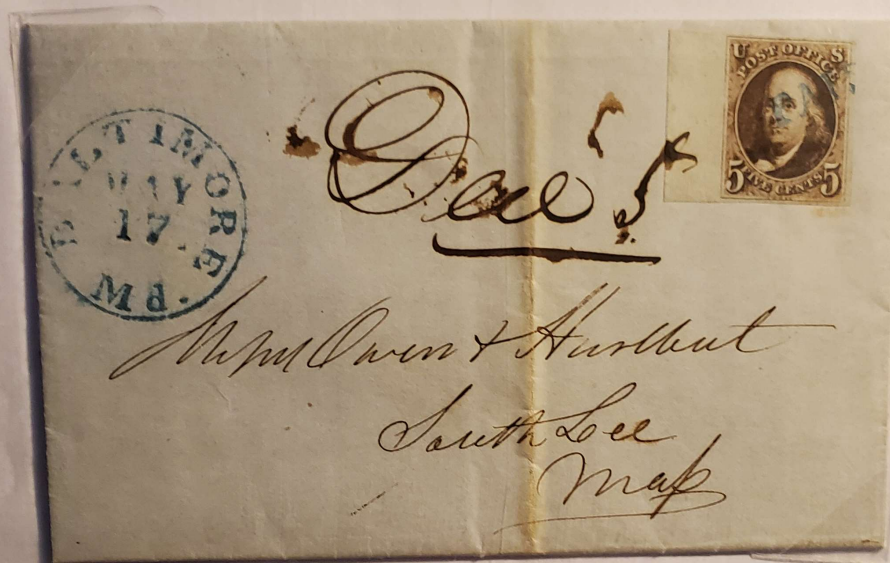 BALTIMORE MD.
MAY
17
U S
POST OFFICE
5 FIVE CENTS 5
Due 5
Messrs Owen & Hurlbut
South Lee
Mass